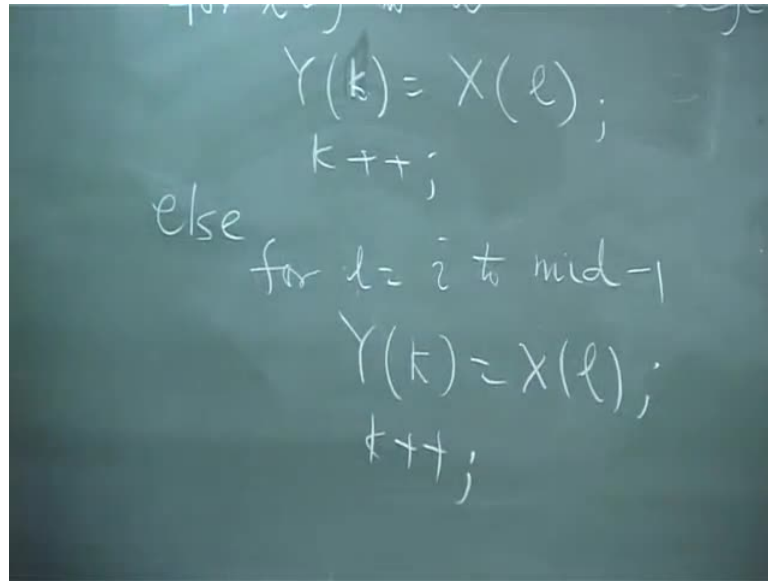 for l=j
Y(k)= X(l);
k++;
else
for l= i to mid-1
Y(k)=X(l);
k++;